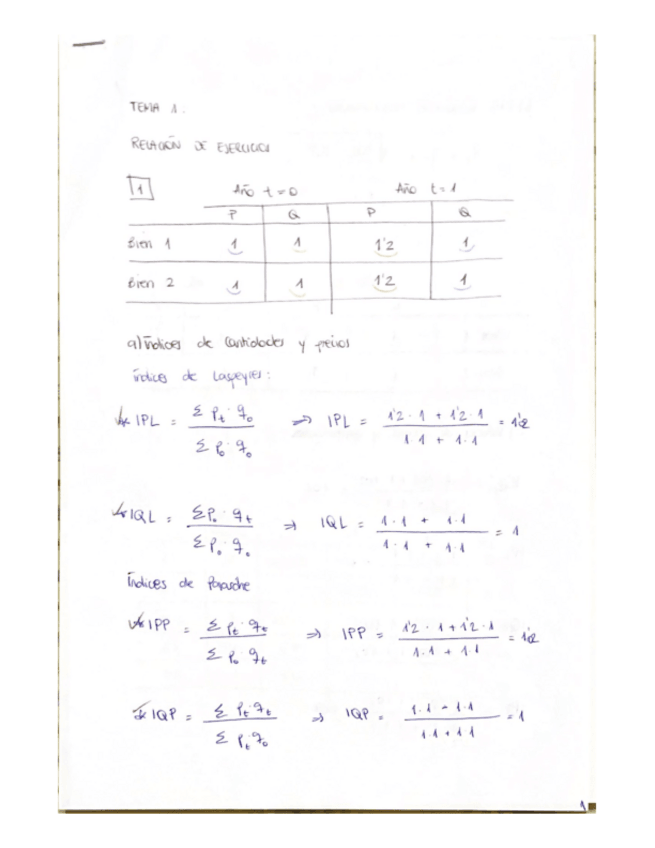 TEMA 1.
RELACIÓN DE EJERCICIOS
1 Año t=0 Año t=1
P Q P Q
Bien 1 1 1 1'2 1
Bien 2 1 1 1'2 1
a) Índices de Cantidades y precios
Índices de Laspeyres:
* IPL = Σ Pt · q0 / Σ P0 · q0 ⇒ IPL = 1'2 · 1 + 1'2 · 1 / 1·1 + 1·1 = 1'2
* IQL = Σ P0 · qt / Σ P0 · q0 ⇒ IQL = 1·1 + 1·1 / 1·1 + 1·1 = 1
Índices de Paasche
* IPP = Σ Pt · qt / Σ P0 · qt ⇒ IPP = 1'2 · 1 + 1'2 · 1 / 1·1 + 1·1 = 1'2
* IQP = Σ Pt · qt / Σ Pt · q0 ⇒ IQP = 1·1 + 1·1 / 1·1 + 1·1 = 1
1